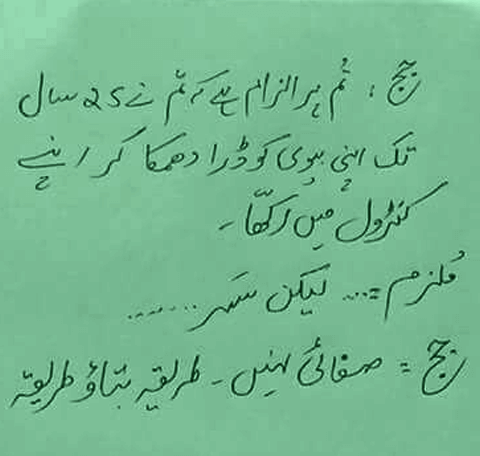 جج : تُم پر الزام ہے کہ تم نے 25 سال
تک اپنی بیوی کو ڈرا دھمکا کر اپنے
کنٹرول میں رکھّا -
مُلزم =... لیکن سَر .......
جج = صفائی نہیں - طریقہ بتاؤ طریقہ